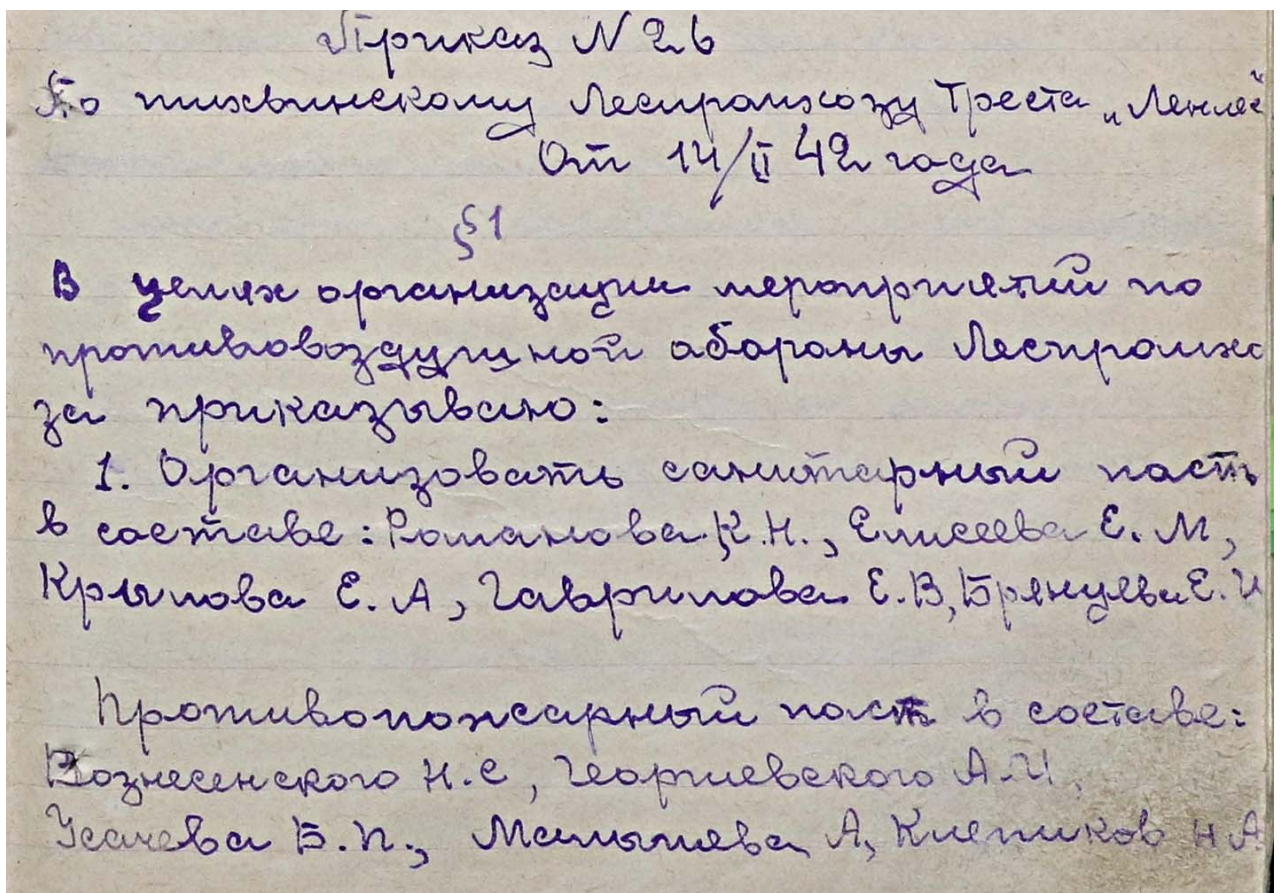 Приказ N 26
По тихвинскому Леспромхозу Треста „Ленлес"
От 14/II 42 года
§1
В целях организации мероприятий по
противовоздушной абараны Леспромхо
за приказываю:
1. Организовать санитарный пост
в составе: Романова К.Н., Елисеева Е.М,
Крылова Е.А, Гаврилова Е.В, Е.И
Противопожарный пост в составе:
Вознесенского Н.С, Георгиевского А.И,
Усачева Б.П., А, Клепиков Н А